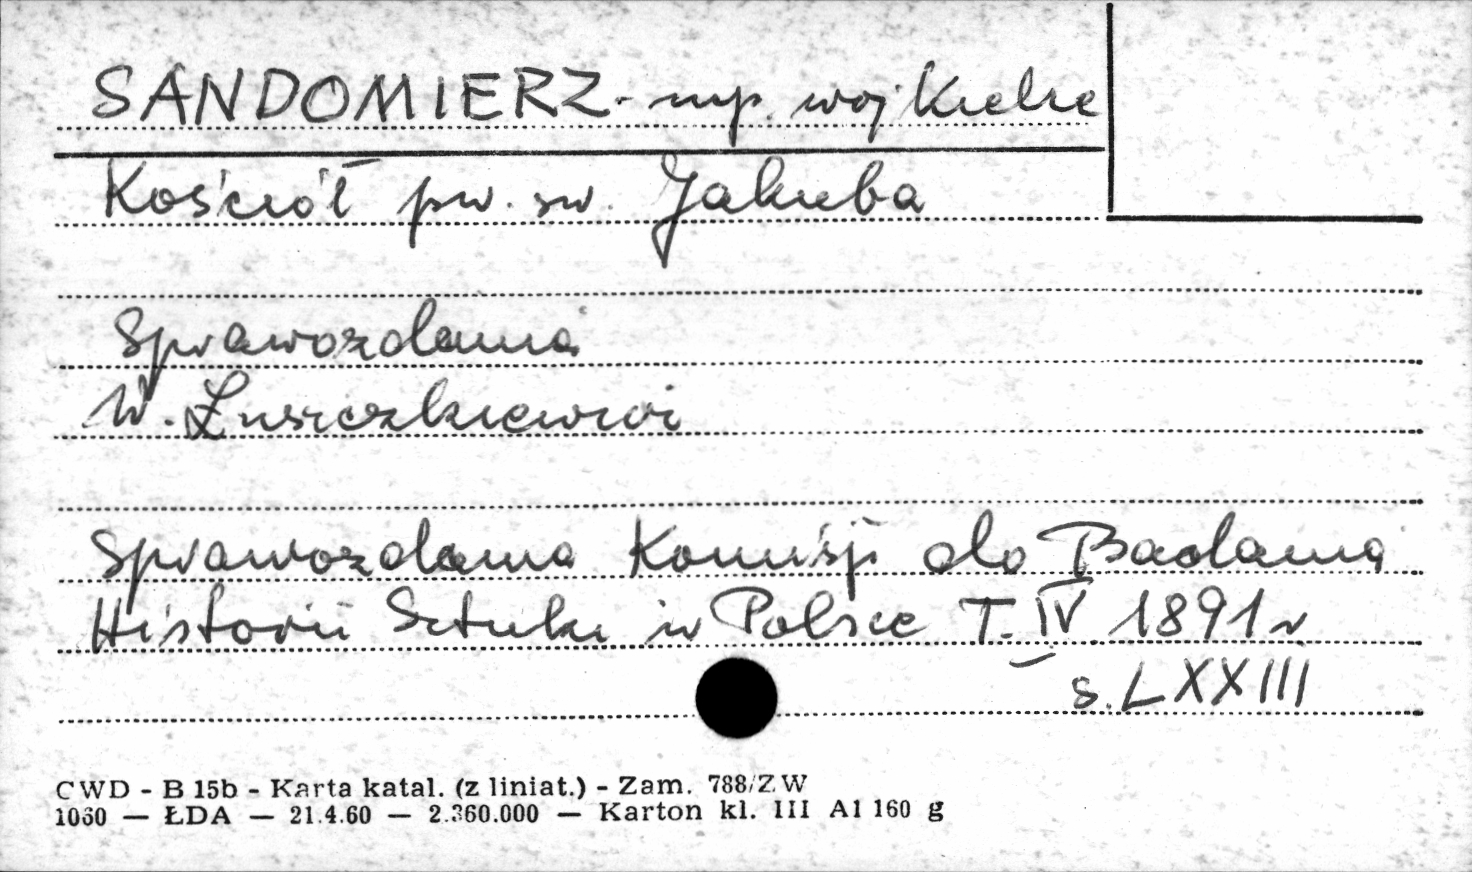 SANDOMIERZ - mp. woj Kielce
Kościół pw. św. Jakuba
Sprawozdania
W. Łuszczkiewicz
Sprawozdania Komisji do Badania
Historii Sztuki w Polsce T. IV 1891 r
s. LXXIII
CWD - B 15b - Karta katal. (z liniat.) - Zam. 788/ZW
1060 — ŁDA — 21.4.60 — 2.360.000 — Karton kl. III A1 160 g